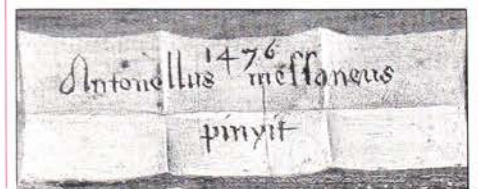 1476
Antonellus messaneus
pinxit